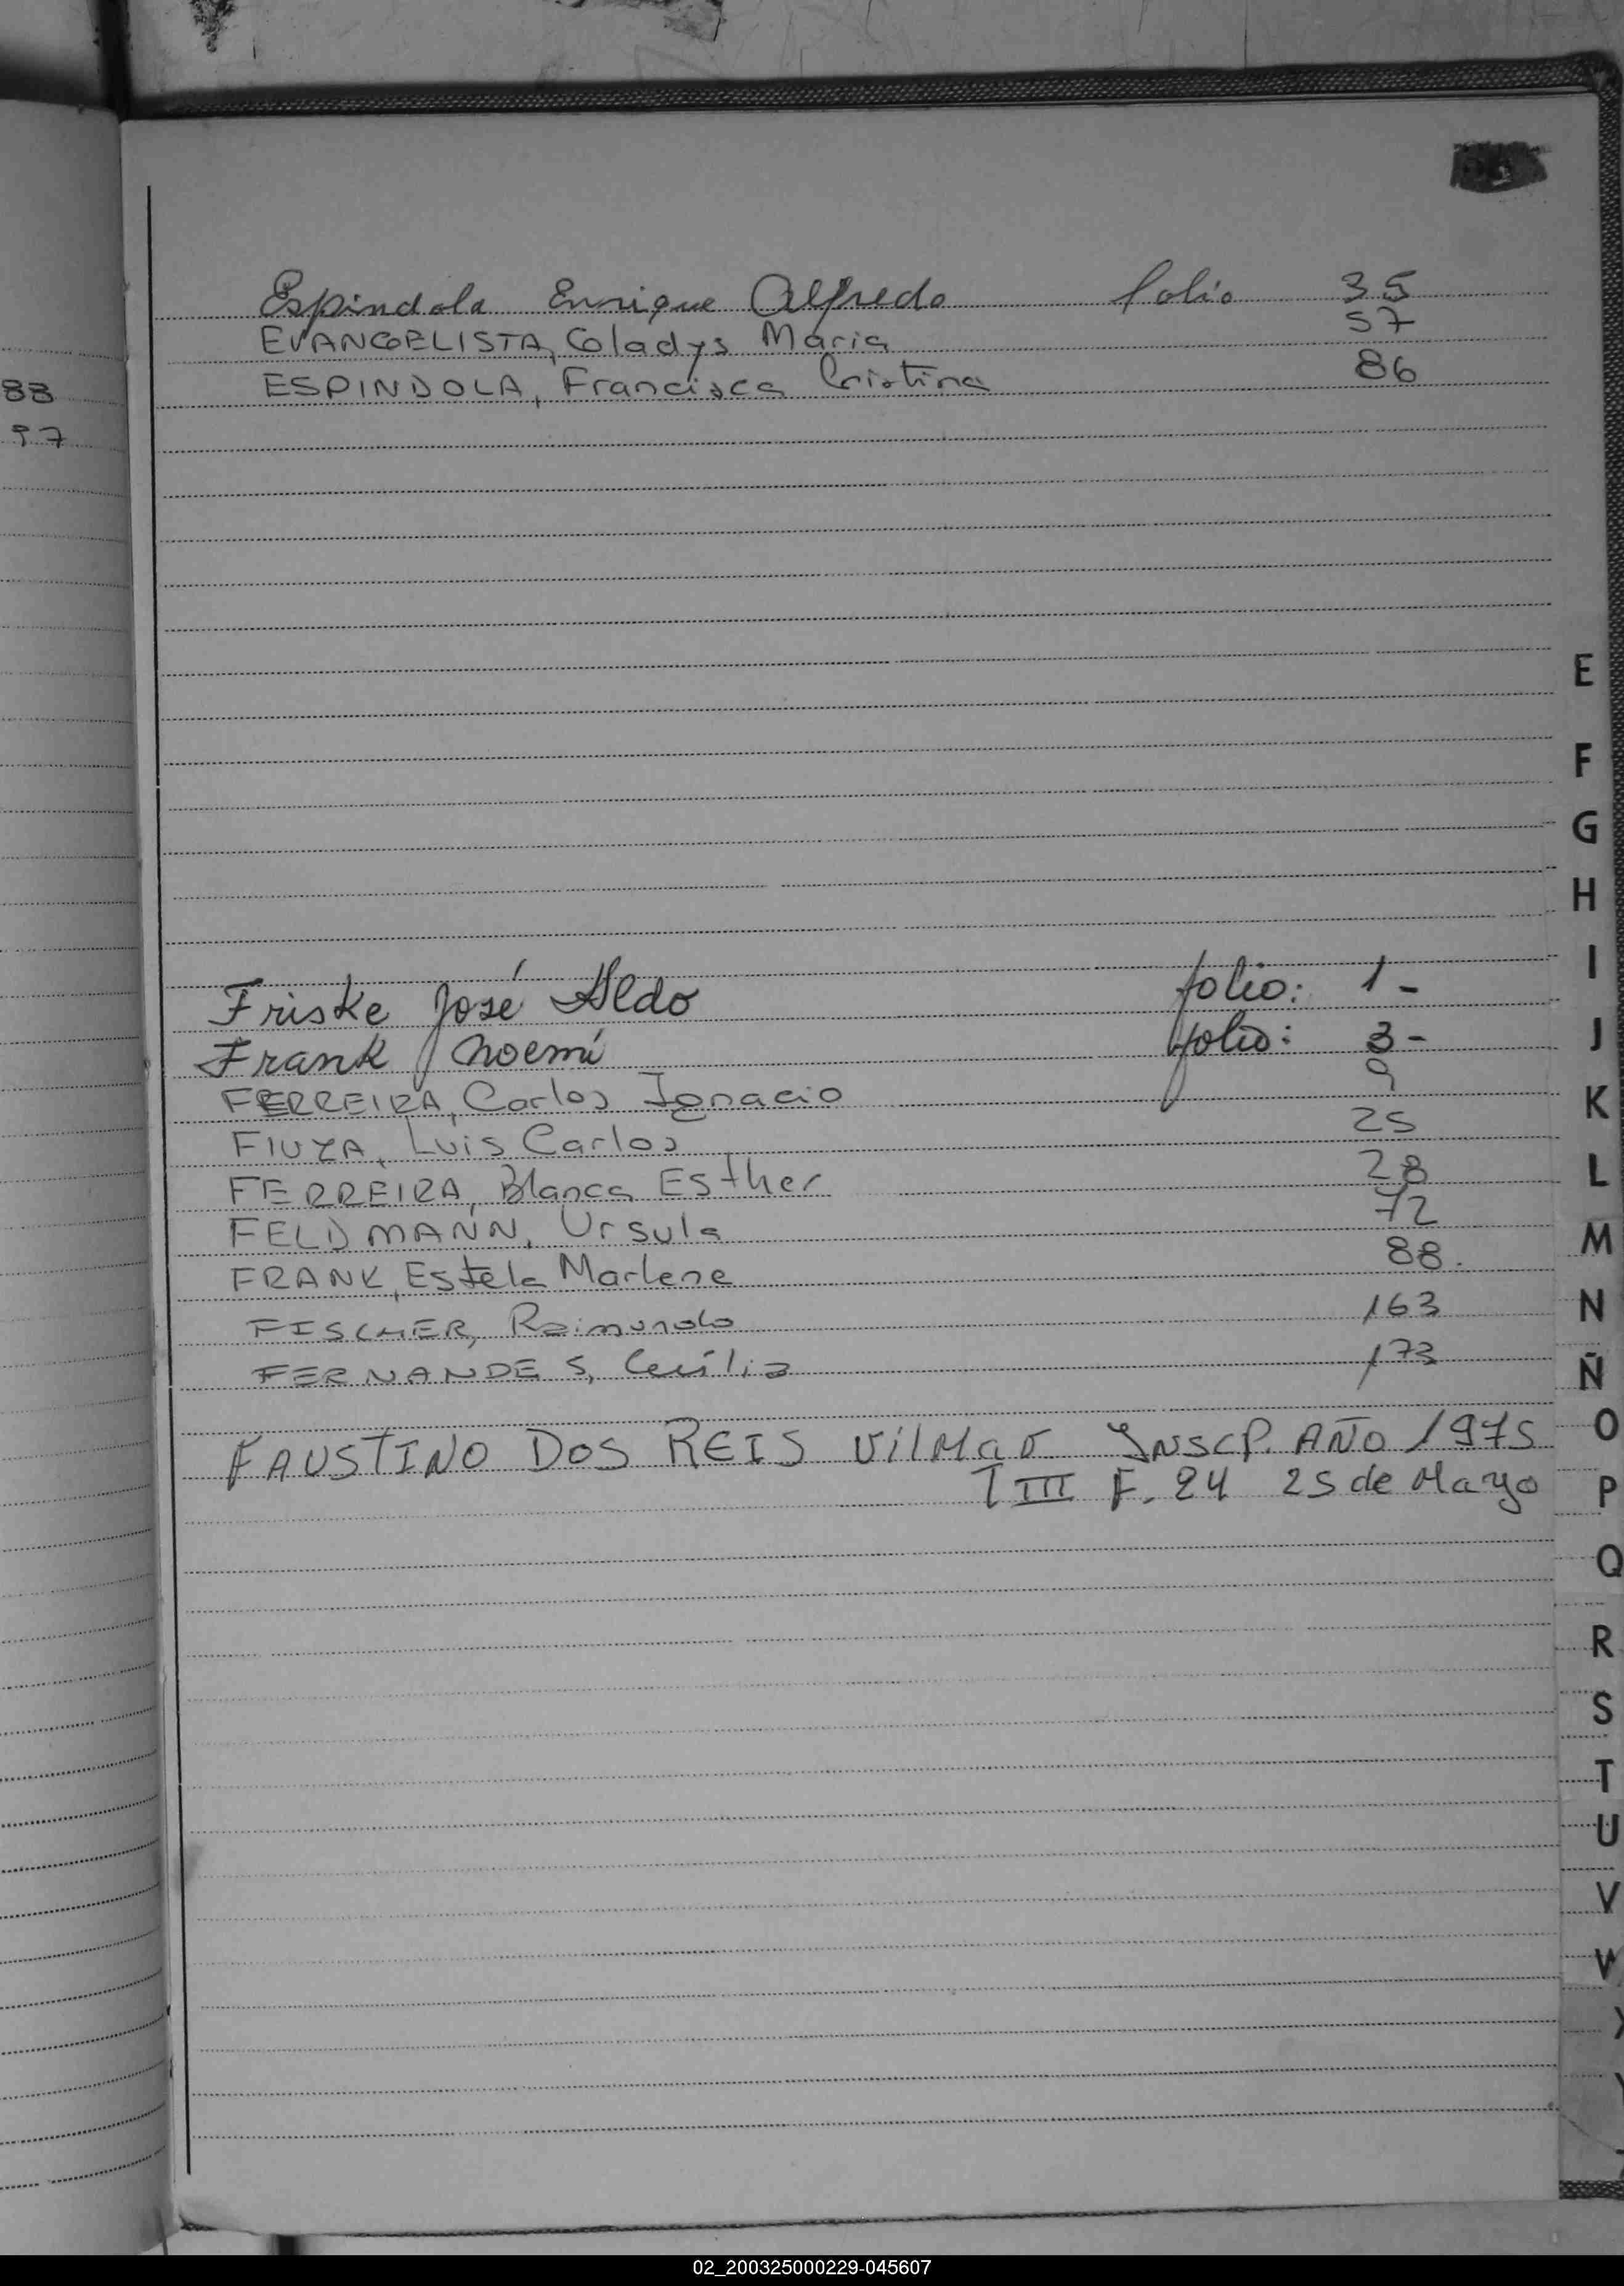 88
97
Espindola Enrique Alfredo folio 35
EVANGELISTA, Gladys Maria 57
ESPINDOLA, Francisca Cristina 86
Friske José Aldo folio: 1-
Frank Noemí folio: 3-
FERREIRA, Carlos Ignacio 9
FIUZA, Luis Carlos 25
FERREIRA, Blanca Esther 28
FELDMANN, Ursula 72
FRANK, Estela Marlene 88.
FISCHER, Raimundo 163
FERNANDES, Cecilia 173
FAUSTINO DOS REIS INSCP. AÑO 1975
T III F. 24 25 de Mayo
E
F
G
H
I
J
K
L
M
N
Ñ
O
P
Q
R
S
T
U
V
W
02_200325000229-045607